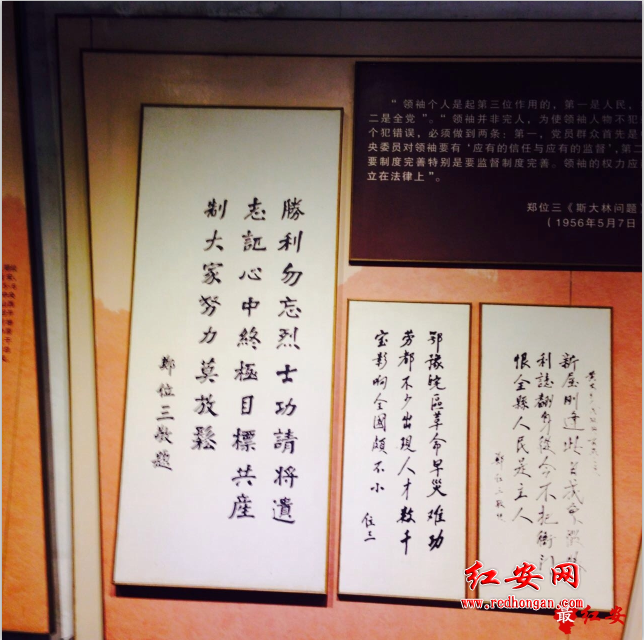 勝利勿忘烈士功請將遺
志記心中終極目標共産
制大家努力莫放鬆
鄭位三敬題
“领袖个人是起第三位作用的，第一是人民，
二是全党”。“领袖并非完人，为使领袖人物不犯
个犯错误，必须做到两条：第一，党员群众首先是
央委员对领袖要有‘应有的信任与应有的监督’，第二
要制度完善特别是要监督制度完善。领袖的权力应
立在法律上”。
郑位三《斯大林问题
（1956年5月7日
鄂豫皖區革命早災难功
劳都不少出現人才数千
宝影响全國頗不小
位三
新屋刚
利誌翻身後今不把衙门
恨全縣人民是主人
鄭位三敬
红安网
www.redhongan.com
最红安